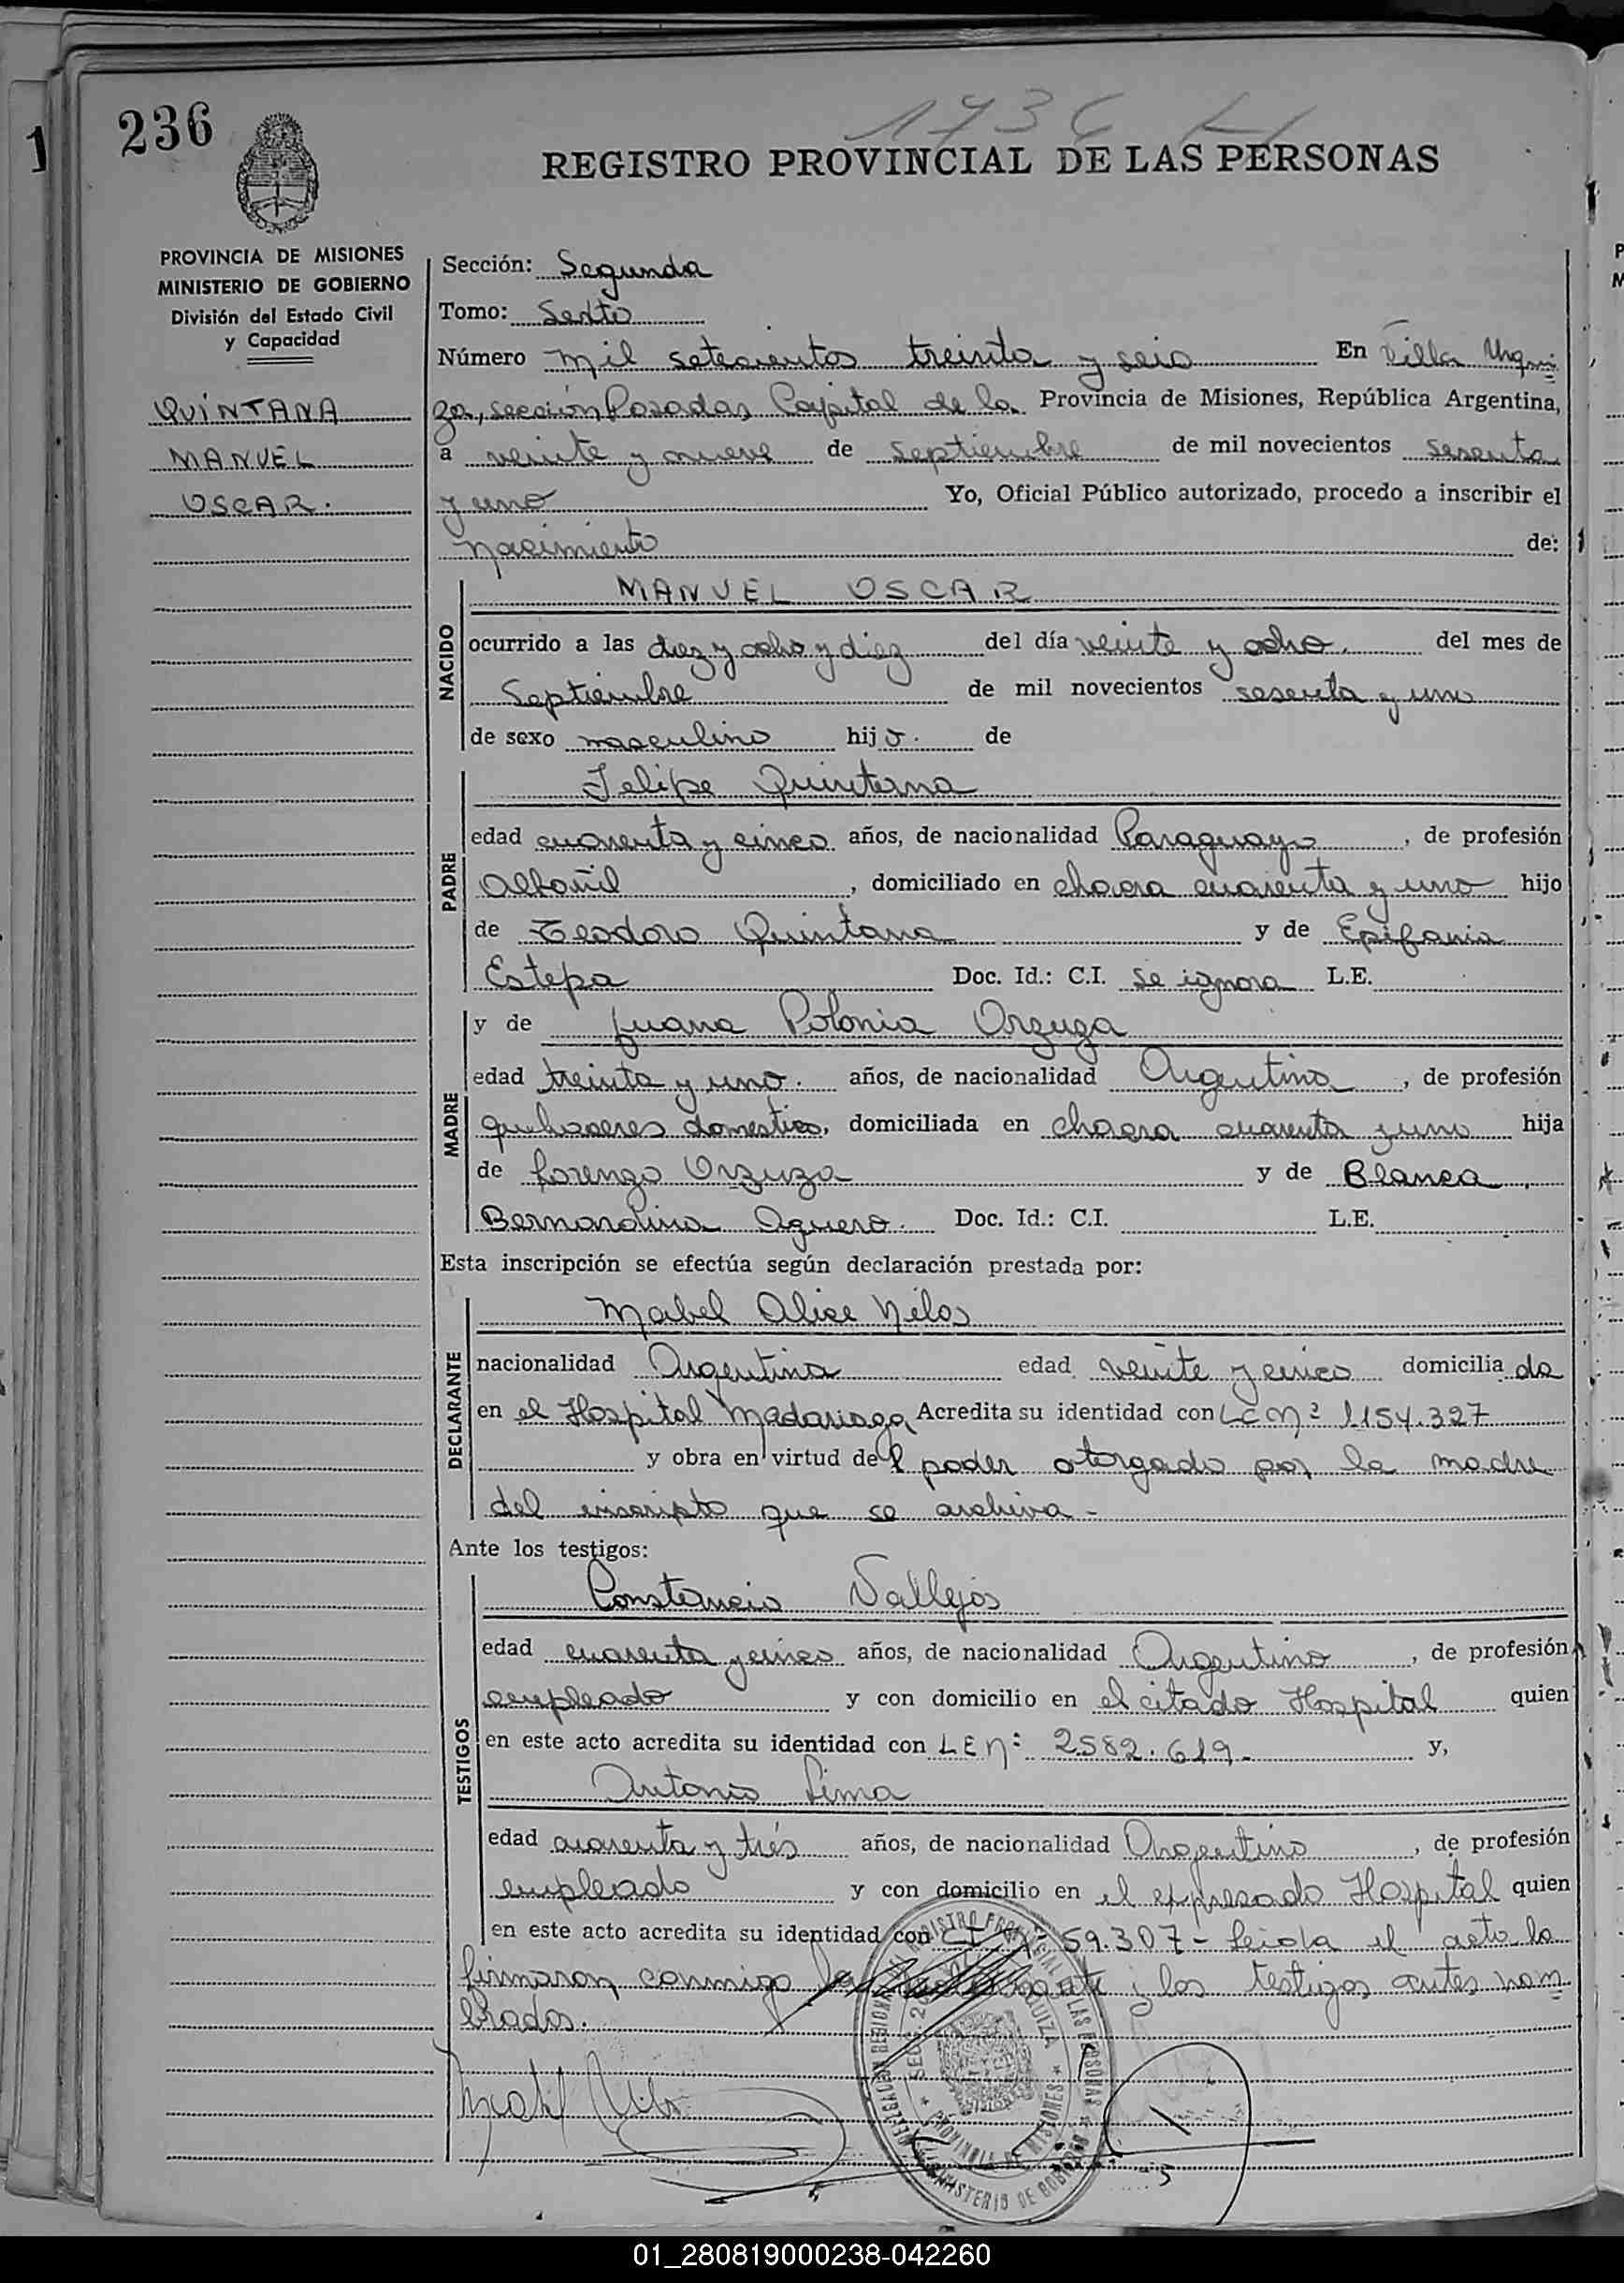 1736
236
REGISTRO PROVINCIAL DE LAS PERSONAS
PROVINCIA DE MISIONES
MINISTERIO DE GOBIERNO
División del Estado Civil
y Capacidad
QUINTANA
MANUEL
OSCAR.
Sección: Segunda
Tomo: Sexto
Número mil setecientos treinta y seis En Villa Urqui
za, sección Posadas, Capital de la Provincia de Misiones, República Argentina,
a veinte y nueve de septiembre de mil novecientos sesenta
y uno Yo, Oficial Público autorizado, procedo a inscribir el
nacimiento de:
NACIDO
MANUEL OSCAR
ocurrido a las diez y ocho y diez del día veinte y ocho. del mes de
Septiembre de mil novecientos sesenta y uno
de sexo masculino hijo. de
PADRE
Felipe Quintana
edad cuarenta y cinco años, de nacionalidad Paraguayo, de profesión
Albañil, domiciliado en chacra cuarenta y uno hijo
de Teodoro Quintana y de Epifania
Estepa Doc. Id.: C.I. se ignora L.E.
MADRE
y de Juana Polonia Orzuza
edad treinta y uno. años, de nacionalidad Argentina, de profesión
quehaceres domestico, domiciliada en chacra cuarenta y uno hija
de Lorenzo Orzuza y de Blanca
Bernardina Aguero. Doc. Id.: C.I. L.E.
Esta inscripción se efectúa según declaración prestada por:
DECLARANTE
Mabel Alice Nilos
nacionalidad Argentina edad veinte y cinco domiciliada
en el Hospital Madariaga, Acredita su identidad con LC Nº 1.154.327
y obra en virtud del poder otorgado por la madre
del inscripto que se archiva.-
Ante los testigos:
TESTIGOS
Constancio Vallejos
edad cuarenta y cinco años, de nacionalidad Argentino, de profesión
empleado y con domicilio en el citado Hospital quien
en este acto acredita su identidad con L E Nº: 2.582.619.- y,
Antonio Lima
edad cuarenta y trés años, de nacionalidad Argentino, de profesión
empleado y con domicilio en el expresado Hospital quien
en este acto acredita su identidad con CI Nº 59.307 - Leida el acta la
firmaron conmigo la declarante y los testigos antes nom
brados.
REGISTRO PROVINCIAL DE LAS PERSONAS
PROVINCIA DE MISIONES
MINISTERIO DE GOBIERNO
01_280819000238-042260